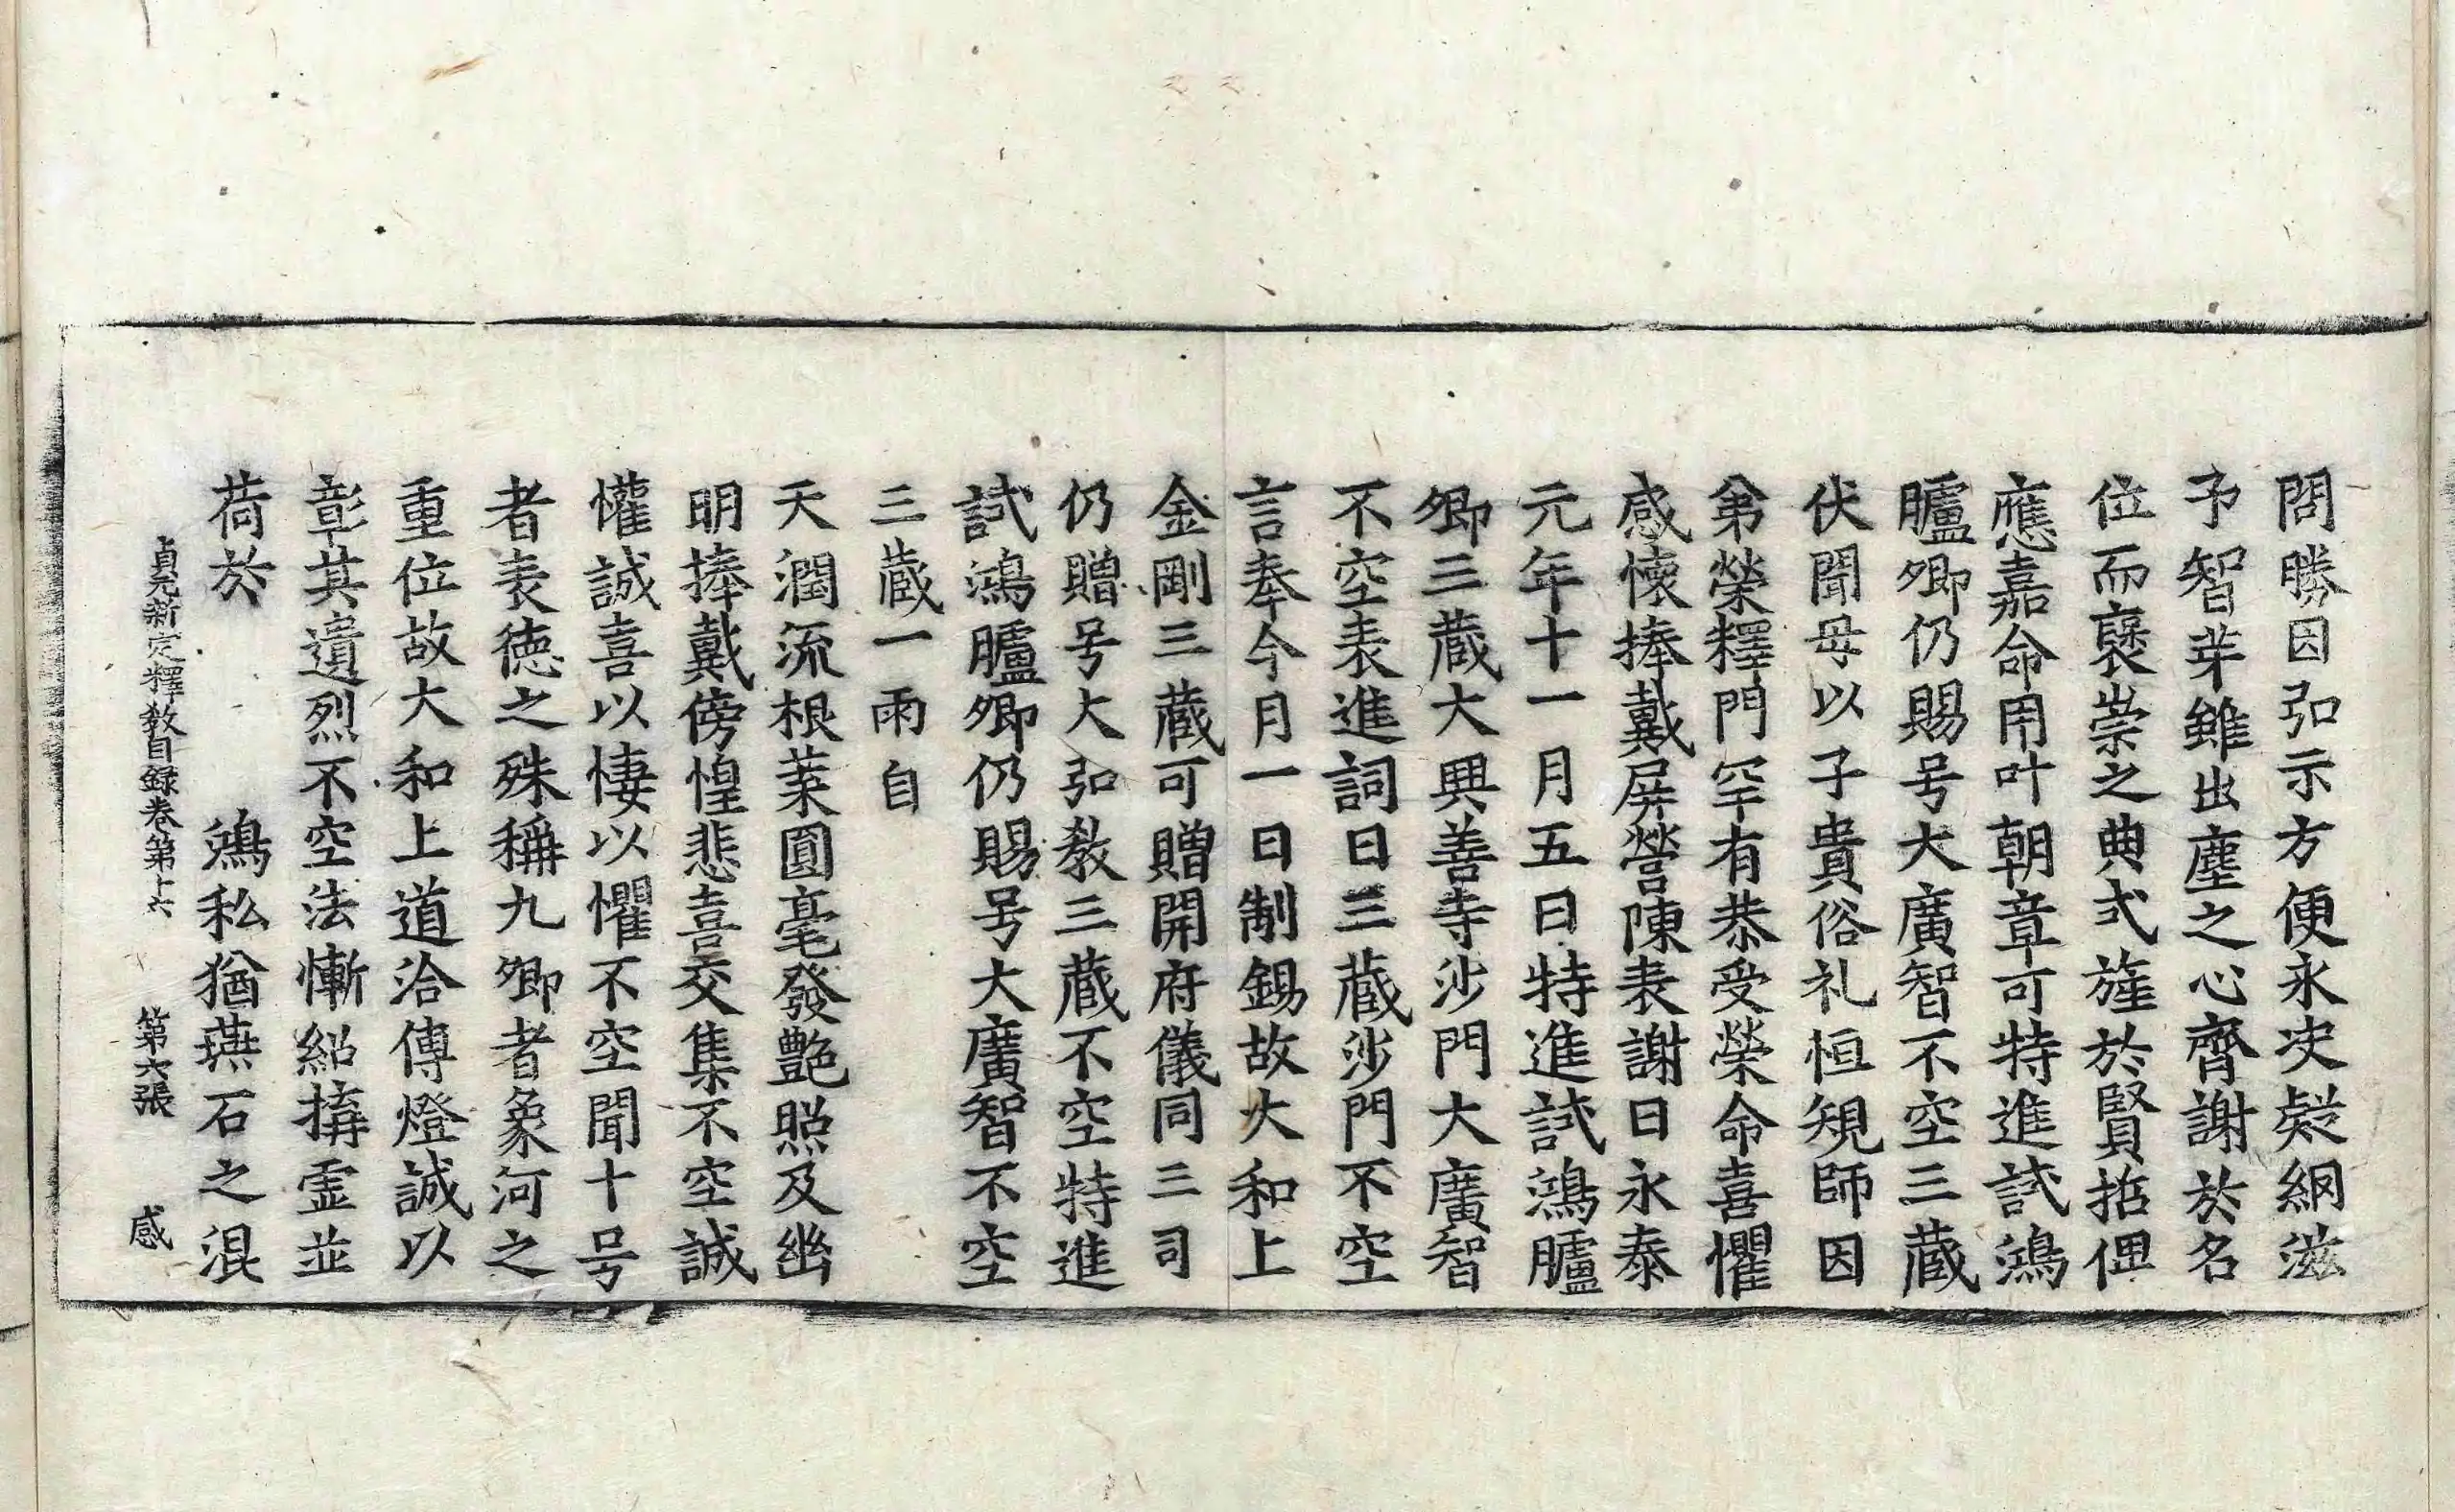 問勝因弘示方便永决疑網滋
予智芽雖出塵之心齊謝於名
位而襃崇之典式旌於賢拈俚
應嘉命用叶朝章可特進試鴻
臚卿仍賜号大廣智不空三蔵
伏聞母以子貴俗礼恒䂓師因
弟榮釋門罕有恭受榮命喜懼
感懷捧戴屏營陳表謝曰永泰
元年十一月五日特進試鴻臚
卿三蔵大興善寺沙門大廣智
不空表進詞曰三蔵沙門不空
言奉今月一日制錫故大和上
金剛三蔵可贈開府儀同三司
仍贈号大弘教三蔵不空特進
試鴻臚卿仍賜号大廣智不空
三蔵一雨自
天潤流根葉圓毫發艶照及幽
明捧戴傍惶悲喜交集不空誠
懽誠喜以悽以懼不空聞十号
者表徳之殊稱九卿者象河之
重位故大和上道洽傳燈誠以
彰其遺烈不空法慚紹搆霊並
荷於 鴻私猶燕石之混
貞元新定釋教目録卷第十六 第六張 感